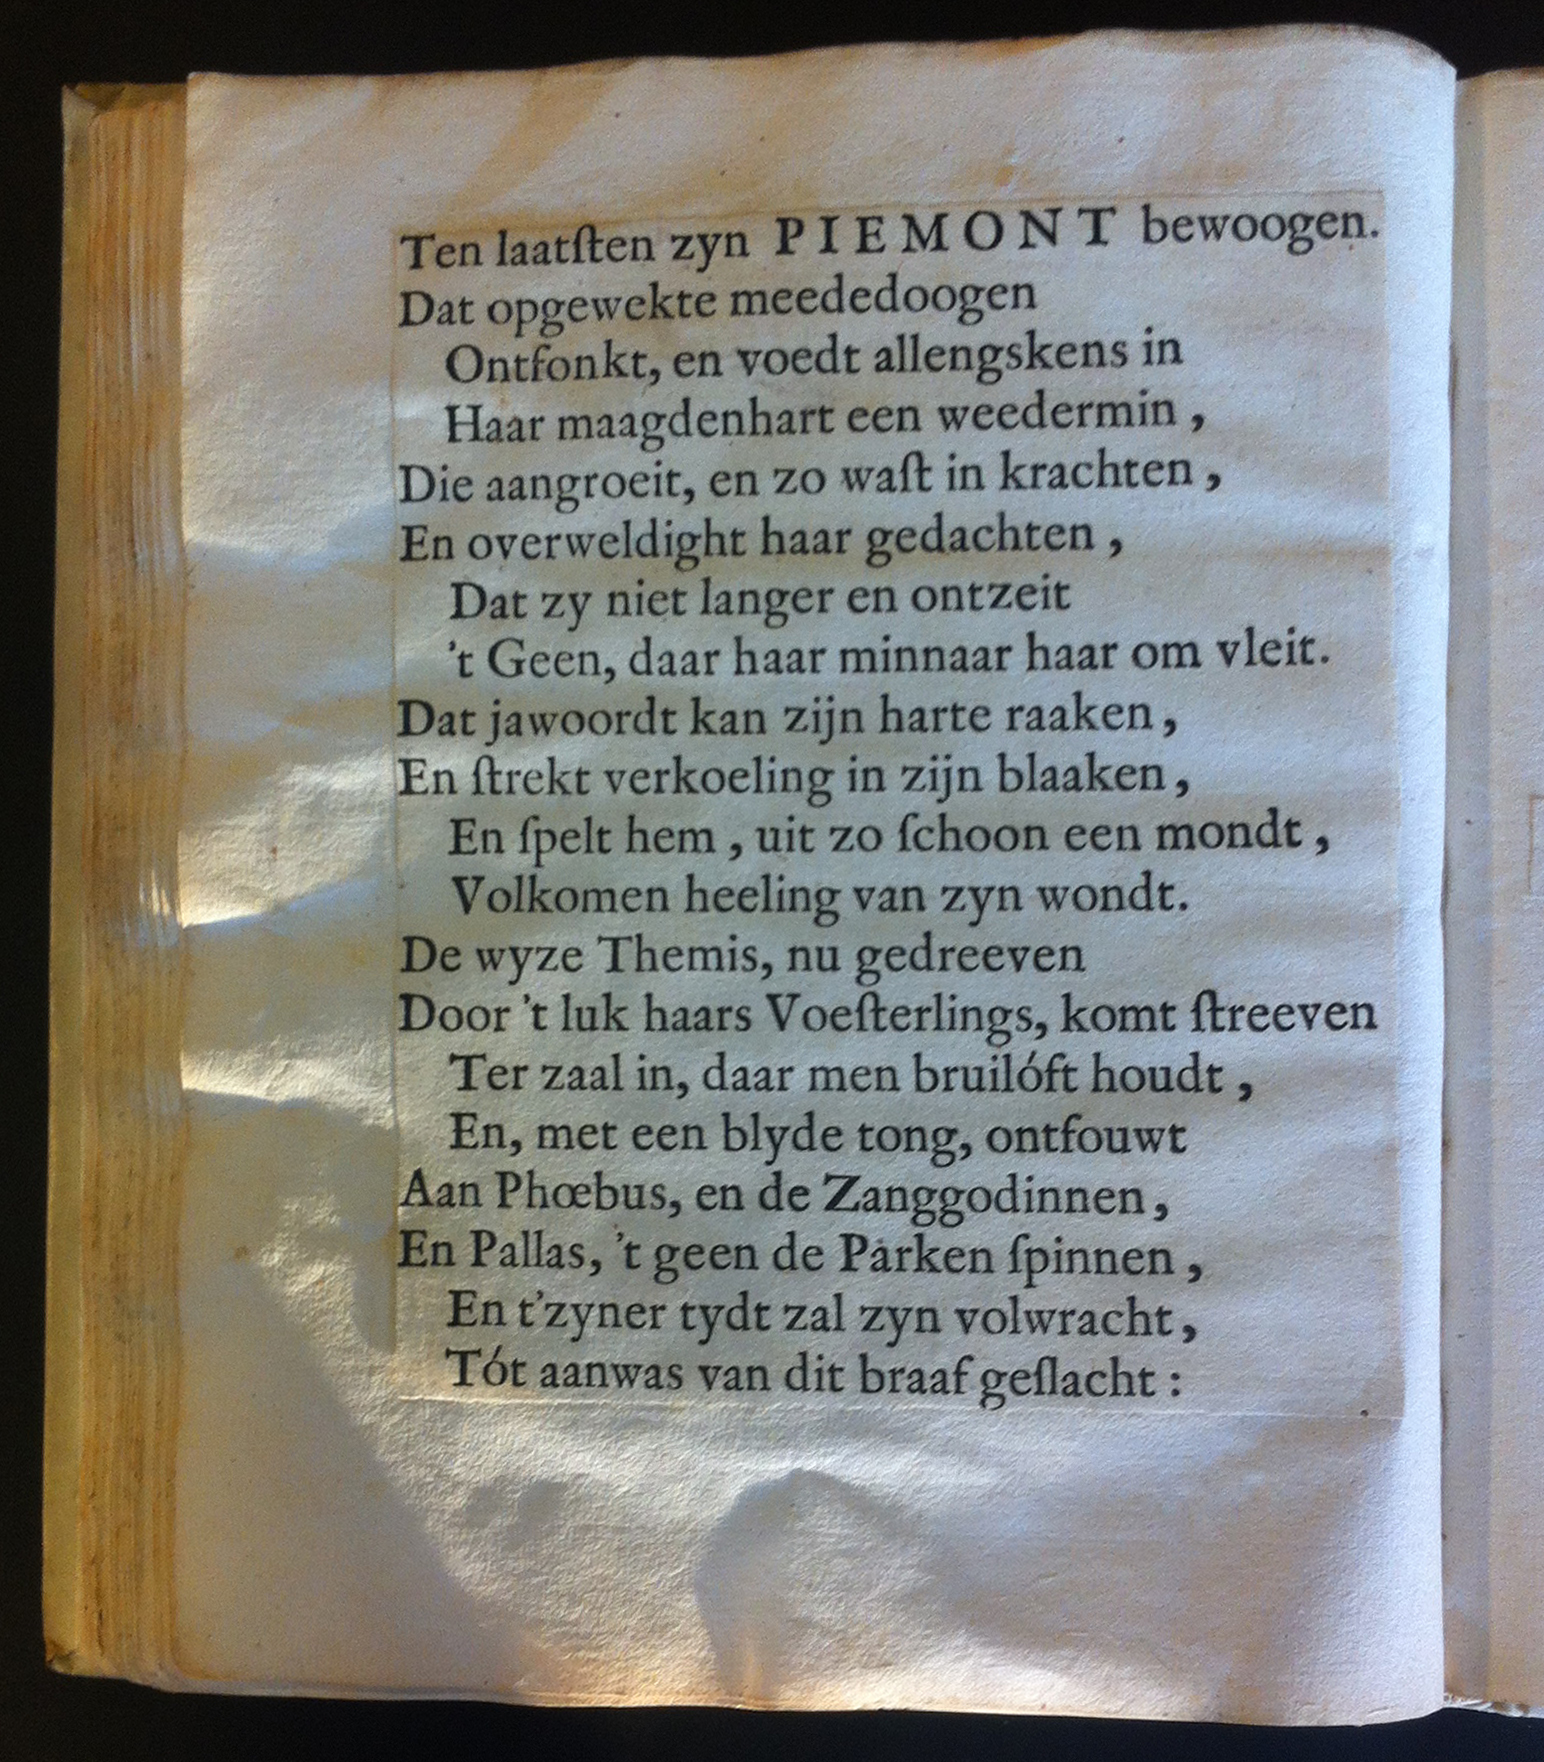 Ten laatſten zyn PIEMONT bewoogen.
Dat opgewekte meededoogen
Ontfonkt, en voedt allengskens in
Haar maagdenhart een weedermin,
Die aangroeit, en zo waſt in krachten,
En overweldight haar gedachten,
Dat zy niet langer en ontzeit
't Geen, daar haar minnaar haar om vleit.
Dat jawoordt kan zijn harte raaken,
En ſtrekt verkoeling in zijn blaaken,
En ſpelt hem, uit zo ſchoon een mondt,
Volkomen heeling van zyn wondt.
De wyze Themis, nu gedreeven
Door 't luk haars Voeſterlings, komt ſtreeven
Ter zaal in, daar men bruilóft houdt,
En, met een blyde tong, ontfouwt
Aan Phœbus, en de Zanggodinnen,
En Pallas, 't geen de Parken ſpinnen,
En t'zyner tydt zal zyn volwracht,
Tót aanwas van dit braaf geſlacht: